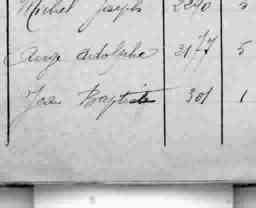 Michel Joseph 2240 5
Ange Adolphe 3177 5
Jean Baptiste 301 1